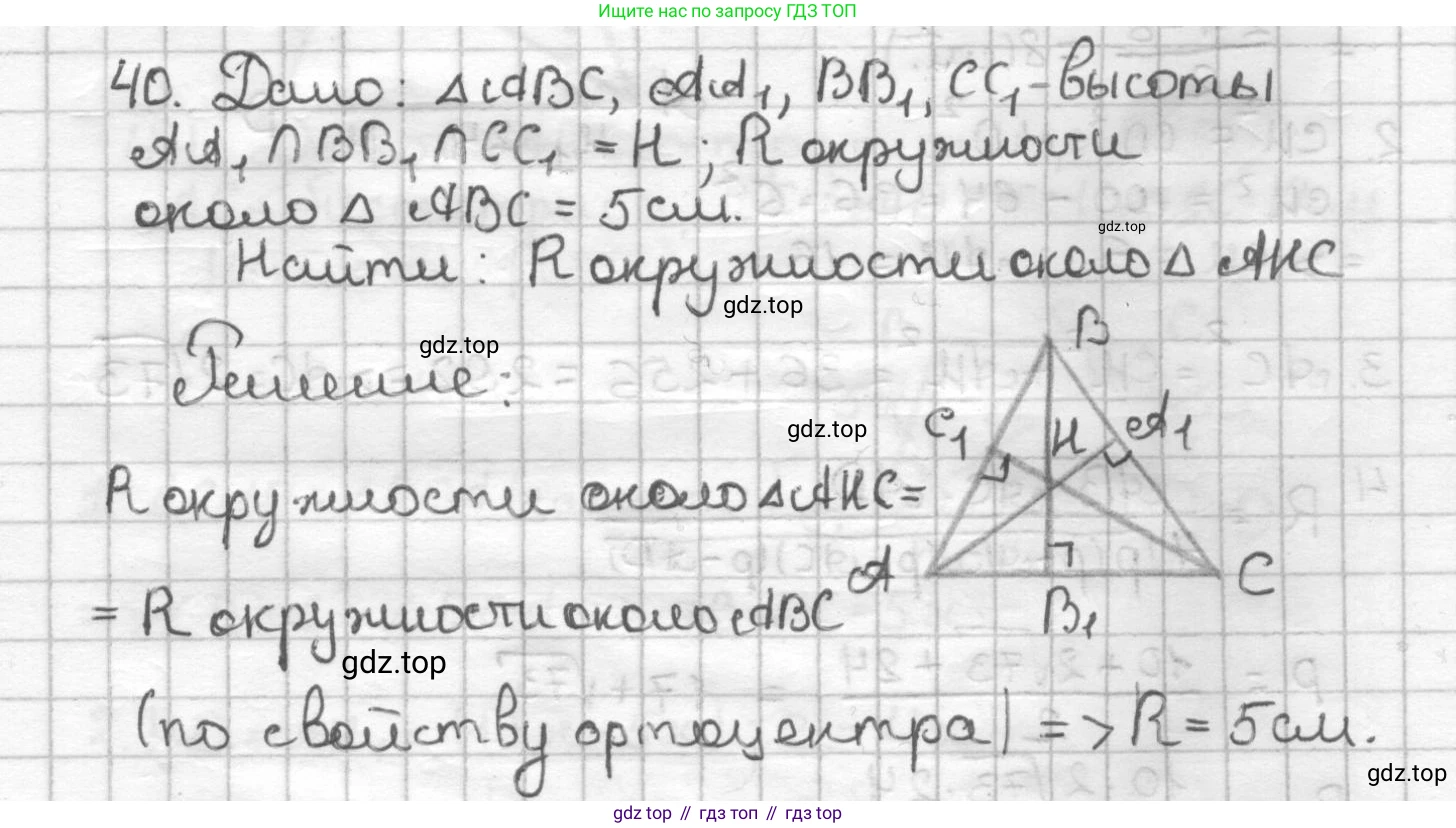 Ищите нас по запросу ГДЗ ТОП
40. Дано: △ABC, AA₁, BB₁, CC₁ - высоты
AA₁ ∩ BB₁ ∩ CC₁ = H; R окружности
около △ ABC = 5 см.
gdz.top
Найти: R окружности около △ AHC
gdz.top
Решение:
gdz.top
B
gdz.top
C₁
H
A₁
R окружности около △AHC =
A
C
= R окружности около ABC
B₁
gdz.top
(по свойству ортоцентра) => R = 5 см.
gdz.top
gdz top // гдз топ // гдз top